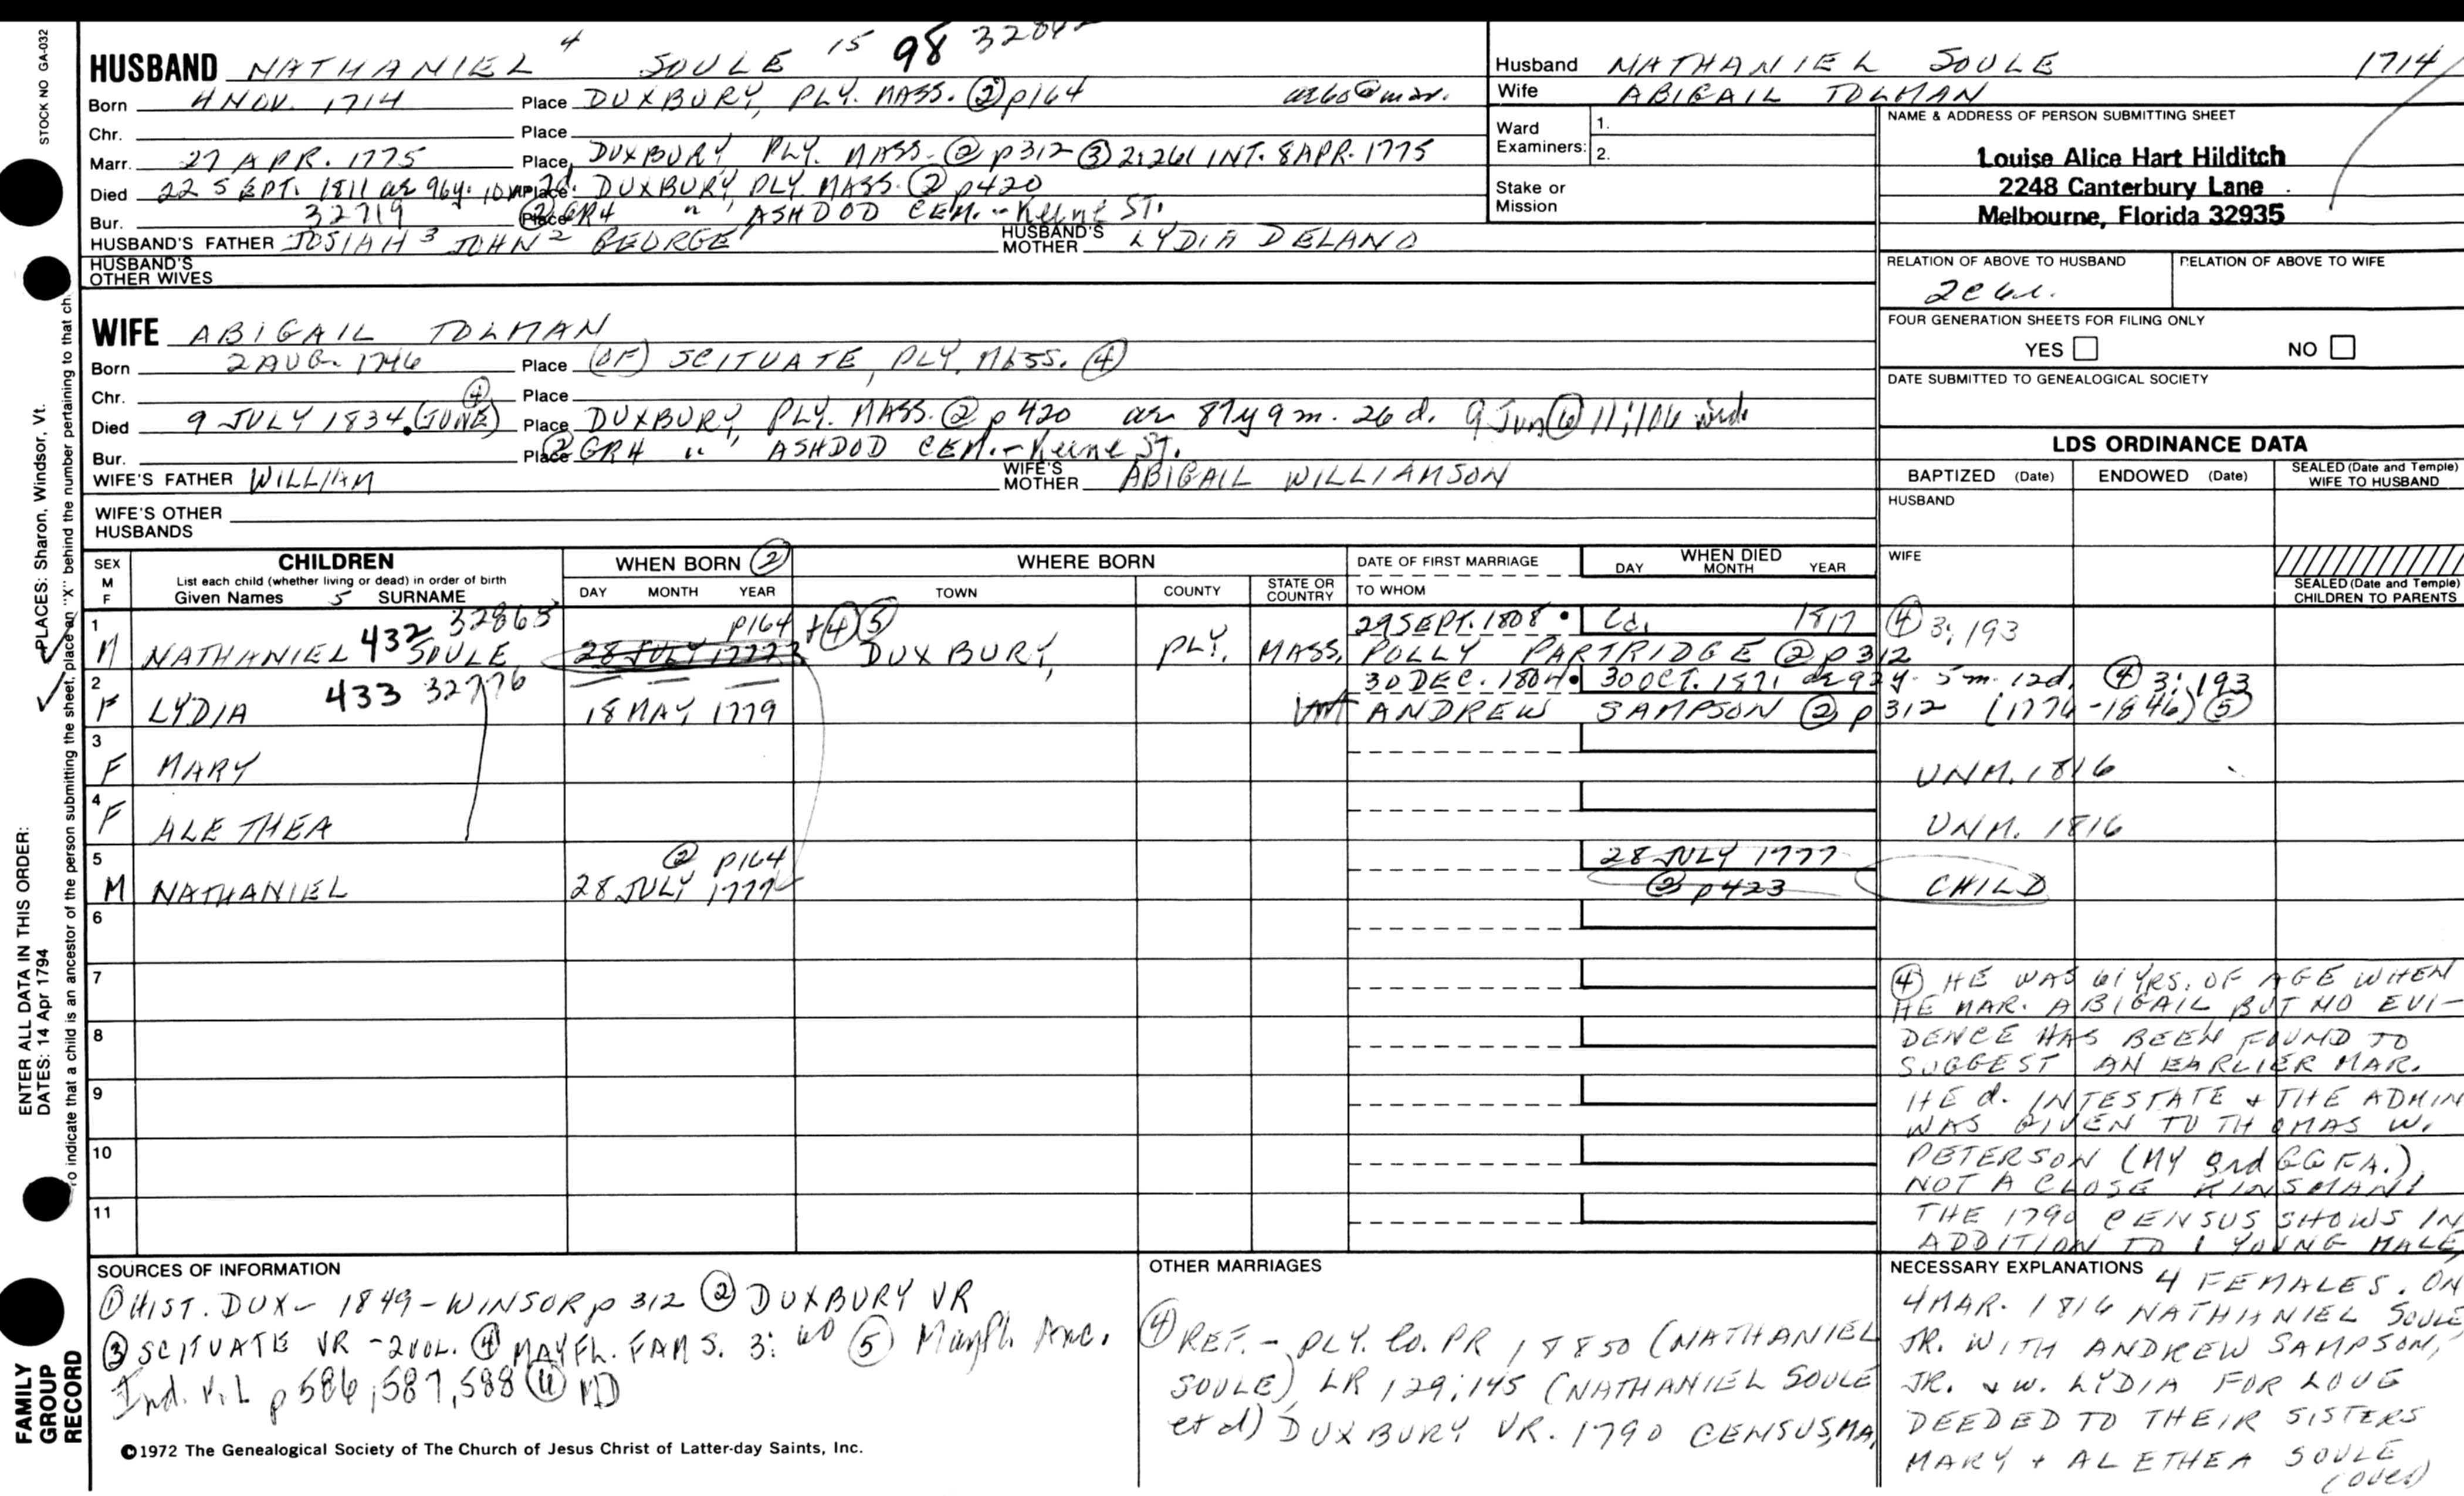 STOCK NO GA-032
HUSBAND NATHANIEL 4 SOULE 15 98
Born 4 NOV. 1714 Place DUXBURY, PLY. MASS. ② p164
Chr. Place
Marr. 27 APR. 1775 Place DUXBURY PLY. MASS. ② p312 ③ 2:261 INT. 8 APR. 1775
Died 22 SEPT. 1811 ae 96y. 10m Place DUXBURY, PLY MASS. ② p420
Bur. 32719 Place ② GR4 " ASHDOD CEM. - Keene ST.
HUSBAND'S FATHER JOSIAH 3 JOHN 2 GEORGE 1 HUSBAND'S MOTHER LYDIA DELANO
HUSBAND'S OTHER WIVES
WIFE ABIGAIL TOLMAN
Born 2 AUG. 1746 Place (OF) SCITUATE, PLY, MASS. ④
Chr. Place
Died 9 JULY 1834. (JUNE) ④ Place DUXBURY, PLY. MASS. ② p420 ae 87y 9m. 26d. 9 Jun ⑥ 11:106
Bur. Place ② GR4 " ASHDOD CEM. - Keene ST.
WIFE'S FATHER WILLIAM WIFE'S MOTHER ABIGAIL WILLIAMSON
WIFE'S OTHER HUSBANDS
Husband NATHANIEL SOULE 1714
Wife ABIGAIL TOLMAN
Ward Examiners: 1.
2.
Stake or Mission
NAME & ADDRESS OF PERSON SUBMITTING SHEET
Louise Alice Hart Hilditch
2248 Canterbury Lane
Melbourne, Florida 32935
RELATION OF ABOVE TO HUSBAND RELATION OF ABOVE TO WIFE
FOUR GENERATION SHEETS FOR FILING ONLY
YES NO
DATE SUBMITTED TO GENEALOGICAL SOCIETY
LDS ORDINANCE DATA
BAPTIZED (Date) ENDOWED (Date) SEALED (Date and Temple) WIFE TO HUSBAND
HUSBAND
WIFE
SEALED (Date and Temple) CHILDREN TO PARENTS
SEX M F CHILDREN WHEN BORN ② WHERE BORN DATE OF FIRST MARRIAGE WHEN DIED
List each child (whether living or dead) in order of birth
Given Names 5 SURNAME DAY MONTH YEAR TOWN COUNTY STATE OR COUNTRY TO WHOM DAY MONTH YEAR
1 432 32863 p164 +④⑤ 29 SEPT. 1808 1817 ④ 3:193
M NATHANIEL SOULE 28 JULY 1777 DUXBURY, PLY. MASS. POLLY PARTRIDGE ② p312
2 433 32776 30 DEC. 1804 30 OCT. 1871 ae 92y. 5m. 12d. ④ 3:193
F LYDIA 18 MAY 1779 ANDREW SAMPSON ② p312 (1774-1846) ⑤
3
F MARY UNM. 1816
4
F ALETHEA UNM. 1816
5 ② p164 28 JULY 1777
M NATHANIEL 28 JULY 1777 ② p423 CHILD
6
7
8
9
10
11
④ HE WAS 61 YRS. OF AGE WHEN
HE MAR. ABIGAIL BUT NO EVI-
DENCE HAS BEEN FOUND TO
SUGGEST AN EARLIER MAR.
HE d. INTESTATE & THE ADMIN
WAS GIVEN TO THOMAS W.
PETERSON (MY 3rd GG FA.)
NOT A CLOSE KINSMAN!
THE 1790 CENSUS SHOWS IN
ADDITION TO 1 YOUNG MALE
NECESSARY EXPLANATIONS 4 FEMALES. ON
4 MAR. 1816 NATHANIEL SOULE
JR. WITH ANDREW SAMPSON,
JR. & W. LYDIA FOR LOVE
DEEDED TO THEIR SISTERS
MARY + ALETHEA SOULE
(over)
SOURCES OF INFORMATION
① HIST. DUX - 1849 - WINSOR p 312 ② DUXBURY VR
③ SCITUATE VR - 2 VOL. ④ MAYFL. FAMS. 3: 60 ⑤ Mayfl. Anc.
Ind. V.1 p 586, 587, 588 ⑥ MD
OTHER MARRIAGES
④ REF. - PLY. Co. PR 18850 (NATHANIEL
SOULE), LR 129:145 (NATHANIEL SOULE
et al) DUXBURY VR. 1790 CENSUS, MA.
©1972 The Genealogical Society of The Church of Jesus Christ of Latter-day Saints, Inc.
FAMILY GROUP RECORD
ENTER ALL DATA IN THIS ORDER:
DATES: 14 Apr 1794
PLACES: Sharon, Windsor, Vt.
To indicate that a child is an ancestor of the person submitting the sheet, place an "X" behind the number pertaining to that ch